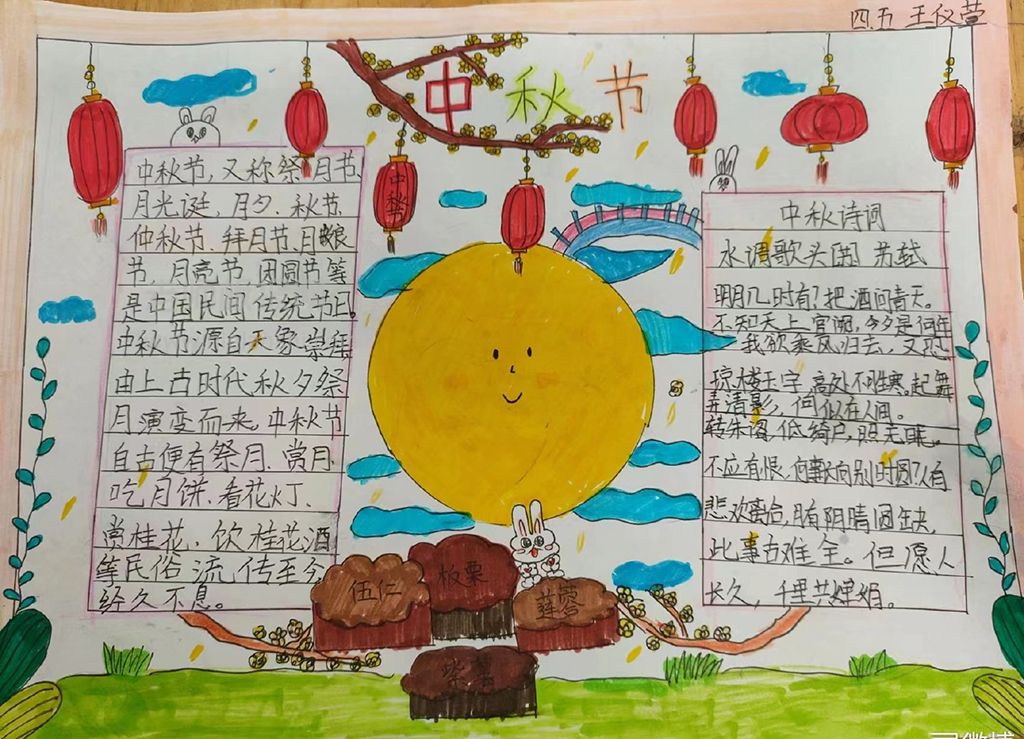 四.五 王仪萱
中秋节
中秋节
中秋节，又称祭月节、
月光诞、月夕、秋节、
仲秋节、拜月节、月娘
节、月亮节、团圆节等
是中国民间传统节日。
中秋节源自天象崇拜
由上古时代秋夕祭
月演变而来。中秋节
自古便有祭月、赏月、
吃月饼、看花灯、
赏桂花、饮桂花酒
等民俗流传至今，
经久不息。
中秋诗词
水调歌头 苏轼
明月几时有？把酒问青天。
不知天上宫阙，今夕是何年
我欲乘风归去，又恐
琼楼玉宇，高处不胜寒。起舞
弄清影，何似在人间。
转朱阁，低绮户，照无眠。
不应有恨，何事长向别时圆？人有
悲欢离合，月有阴晴圆缺，
此事古难全。但愿人
长久，千里共婵娟。
伍仁
板栗
莲蓉
紫薯
微博